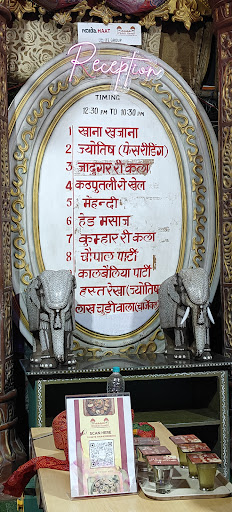 noida HAAT
Reception
TIMING
12:30 PM TO 10:30 PM
1 खाना खजाना
2 ज्योतिष (फेसरीडिंग)
3 जादुगर री कला
4 कठपूतली रो खेल
5 मेहन्दी
6 हेड मसाज
7 कुम्हार री कला
8 चौपाल पार्टी
कालबेलिया पार्टी
हस्त रेखा (ज्योतिष
लाख चूड़ीवाला
SCAN HERE